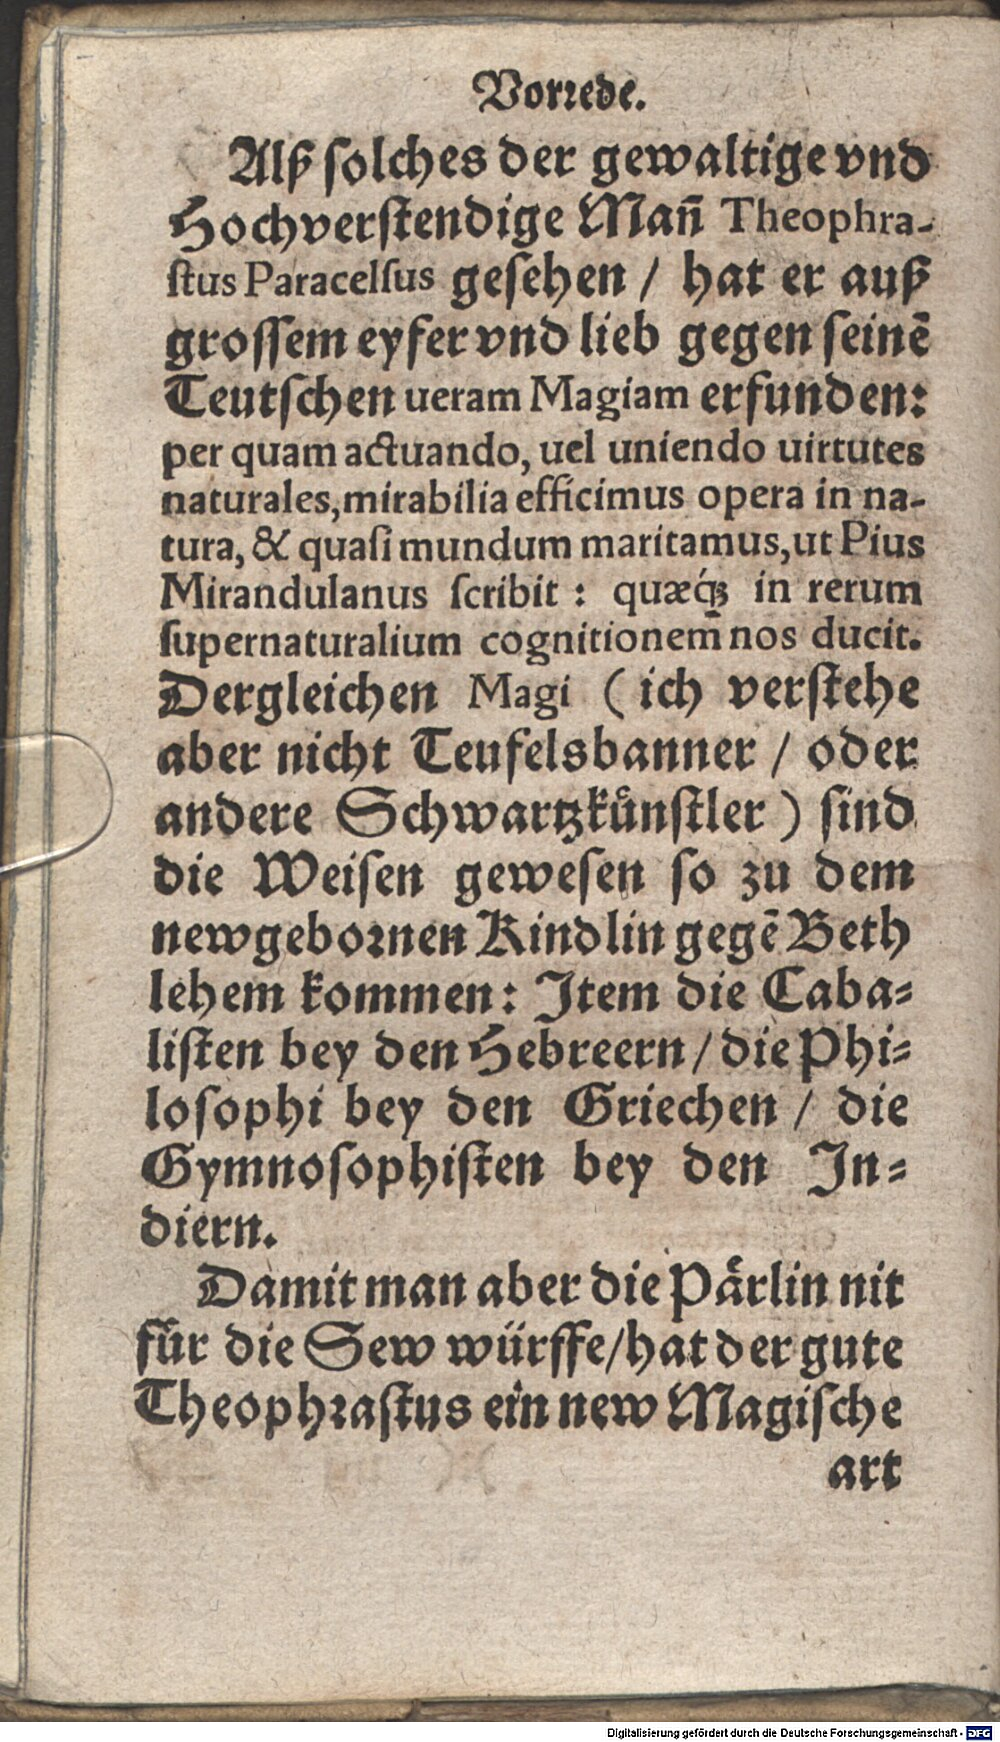 Vorꝛede.
Alß ſolches der gewaltige vnd
Hochverſtendige Man̄ Theophra-
ſtus Paracelſus geſehen / hat er auß
groſſem eyfer vnd lieb gegen ſeinē
Teutſchen ueram Magiam erfunden:
per quam actuando, uel uniendo uirtutes
naturales, mirabilia efficimus opera in na-
tura, & quaſi mundum maritamus, ut Pius
Mirandulanus ſcribit : quæq́ꝫ in rerum
ſupernaturalium cognitionem̄ nos ducit.
Dergleichen Magi ( ich verſtehe
aber nicht Teufelsbanner / oder
andere Schwartzkuͤnſtler ) ſind
die Weiſen geweſen ſo zu dem
newgeboꝛnen Kindlin gegē Beth
lehem kommen: Item die Caba⸗
liſten bey den Hebreern / die Phi⸗
loſophi bey den Griechen / die
Gymnoſophiſten bey den In⸗
diern.
Damit man aber die Paͤrlin nit
fuͤr die Sew würffe / hat der gute
Theophꝛaſtus ein new Magiſche
art
Digitalisierung gefördert durch die Deutsche Forschungsgemeinschaft - DFG